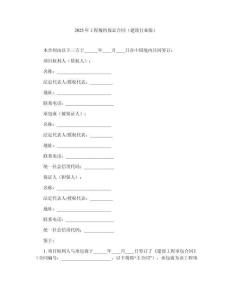 2025 年工程履约保证合同（建设行业版）
本合同由以下三方于______年____月____日在中国境内共同签订：
项目权利人（债权人）：
名称：____________________
法定代表人/授权代表：____________________
地址：____________________
联系电话：____________________
承包商（被保证人）：
名称：____________________
法定代表人/授权代表：____________________
地址：____________________
联系电话：____________________
统一社会信用代码：____________________
保证人（担保人）：
名称：____________________
法定代表人/授权代表：____________________
地址：____________________
联系电话：____________________
统一社会信用代码：____________________
鉴于：
1.项目权利人与承包商于______年____月____日签订了《建设工程承包合同》
（合同编号：____________________，以下简称“主合同”），承包商为工程项目